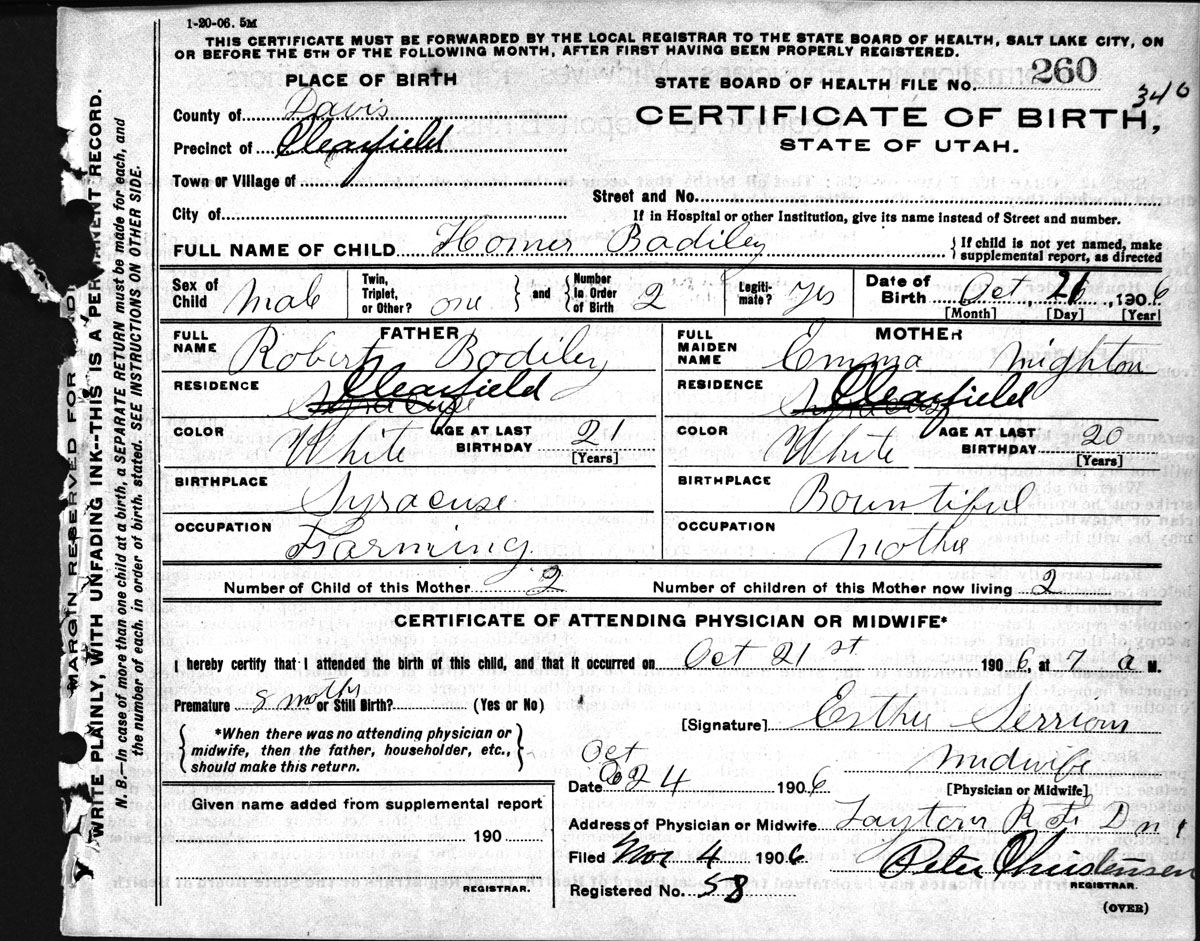 1-20-06. 5M
THIS CERTIFICATE MUST BE FORWARDED BY THE LOCAL REGISTRAR TO THE STATE BOARD OF HEALTH, SALT LAKE CITY, ON
OR BEFORE THE 5TH OF THE FOLLOWING MONTH, AFTER FIRST HAVING BEEN PROPERLY REGISTERED.
PLACE OF BIRTH
STATE BOARD OF HEALTH FILE No. 260
346
County of Davis
CERTIFICATE OF BIRTH,
Precinct of Clearfield
STATE OF UTAH.
Town or Village of
Street and No.
City of
If in Hospital or other Institution, give its name instead of Street and number.
FULL NAME OF CHILD Homer Bodiley { If child is not yet named, make supplemental report, as directed
Sex of Child Male Twin, Triplet, or Other? one } and { Number In Order of Birth 2 Legiti-mate? Yes Date of Birth Oct, 21, 1906
[Month] [Day] [Year]
FATHER
FULL NAME Robert Bodiley
MOTHER
FULL MAIDEN NAME Emma Mighton
RESIDENCE Syracuse Clearfield
RESIDENCE Syracuse Clearfield
COLOR White AGE AT LAST BIRTHDAY 21 [Years]
COLOR White AGE AT LAST BIRTHDAY 20 [Years]
BIRTHPLACE Syracuse
BIRTHPLACE Bountiful
OCCUPATION Farming
OCCUPATION Mother
Number of Child of this Mother 2 Number of children of this Mother now living 2
CERTIFICATE OF ATTENDING PHYSICIAN OR MIDWIFE*
I hereby certify that I attended the birth of this child, and that it occurred on Oct 21st 1906, at 7 a M.
Premature 8 moths or Still Birth? (Yes or No)
[Signature] Esther
*When there was no attending physician or
midwife, then the father, householder, etc.,
should make this return.
Midwife
[Physician or Midwife]
Oct
Date 24 1906
Given name added from supplemental report
190
REGISTRAR.
Address of Physician or Midwife Laytown R F D n 1
Filed Nov 4 1906 Peter Christensen
REGISTRAR.
Registered No. 58
(OVER)
MARGIN RESERVED FOR
WRITE PLAINLY, WITH UNFADING INK--THIS IS A PERMANENT RECORD.
N. B.—In case of more than one child at a birth, a SEPARATE RETURN must be made for each, and
the number of each, in order of birth, stated SEE INSTRUCTIONS ON OTHER SIDE.